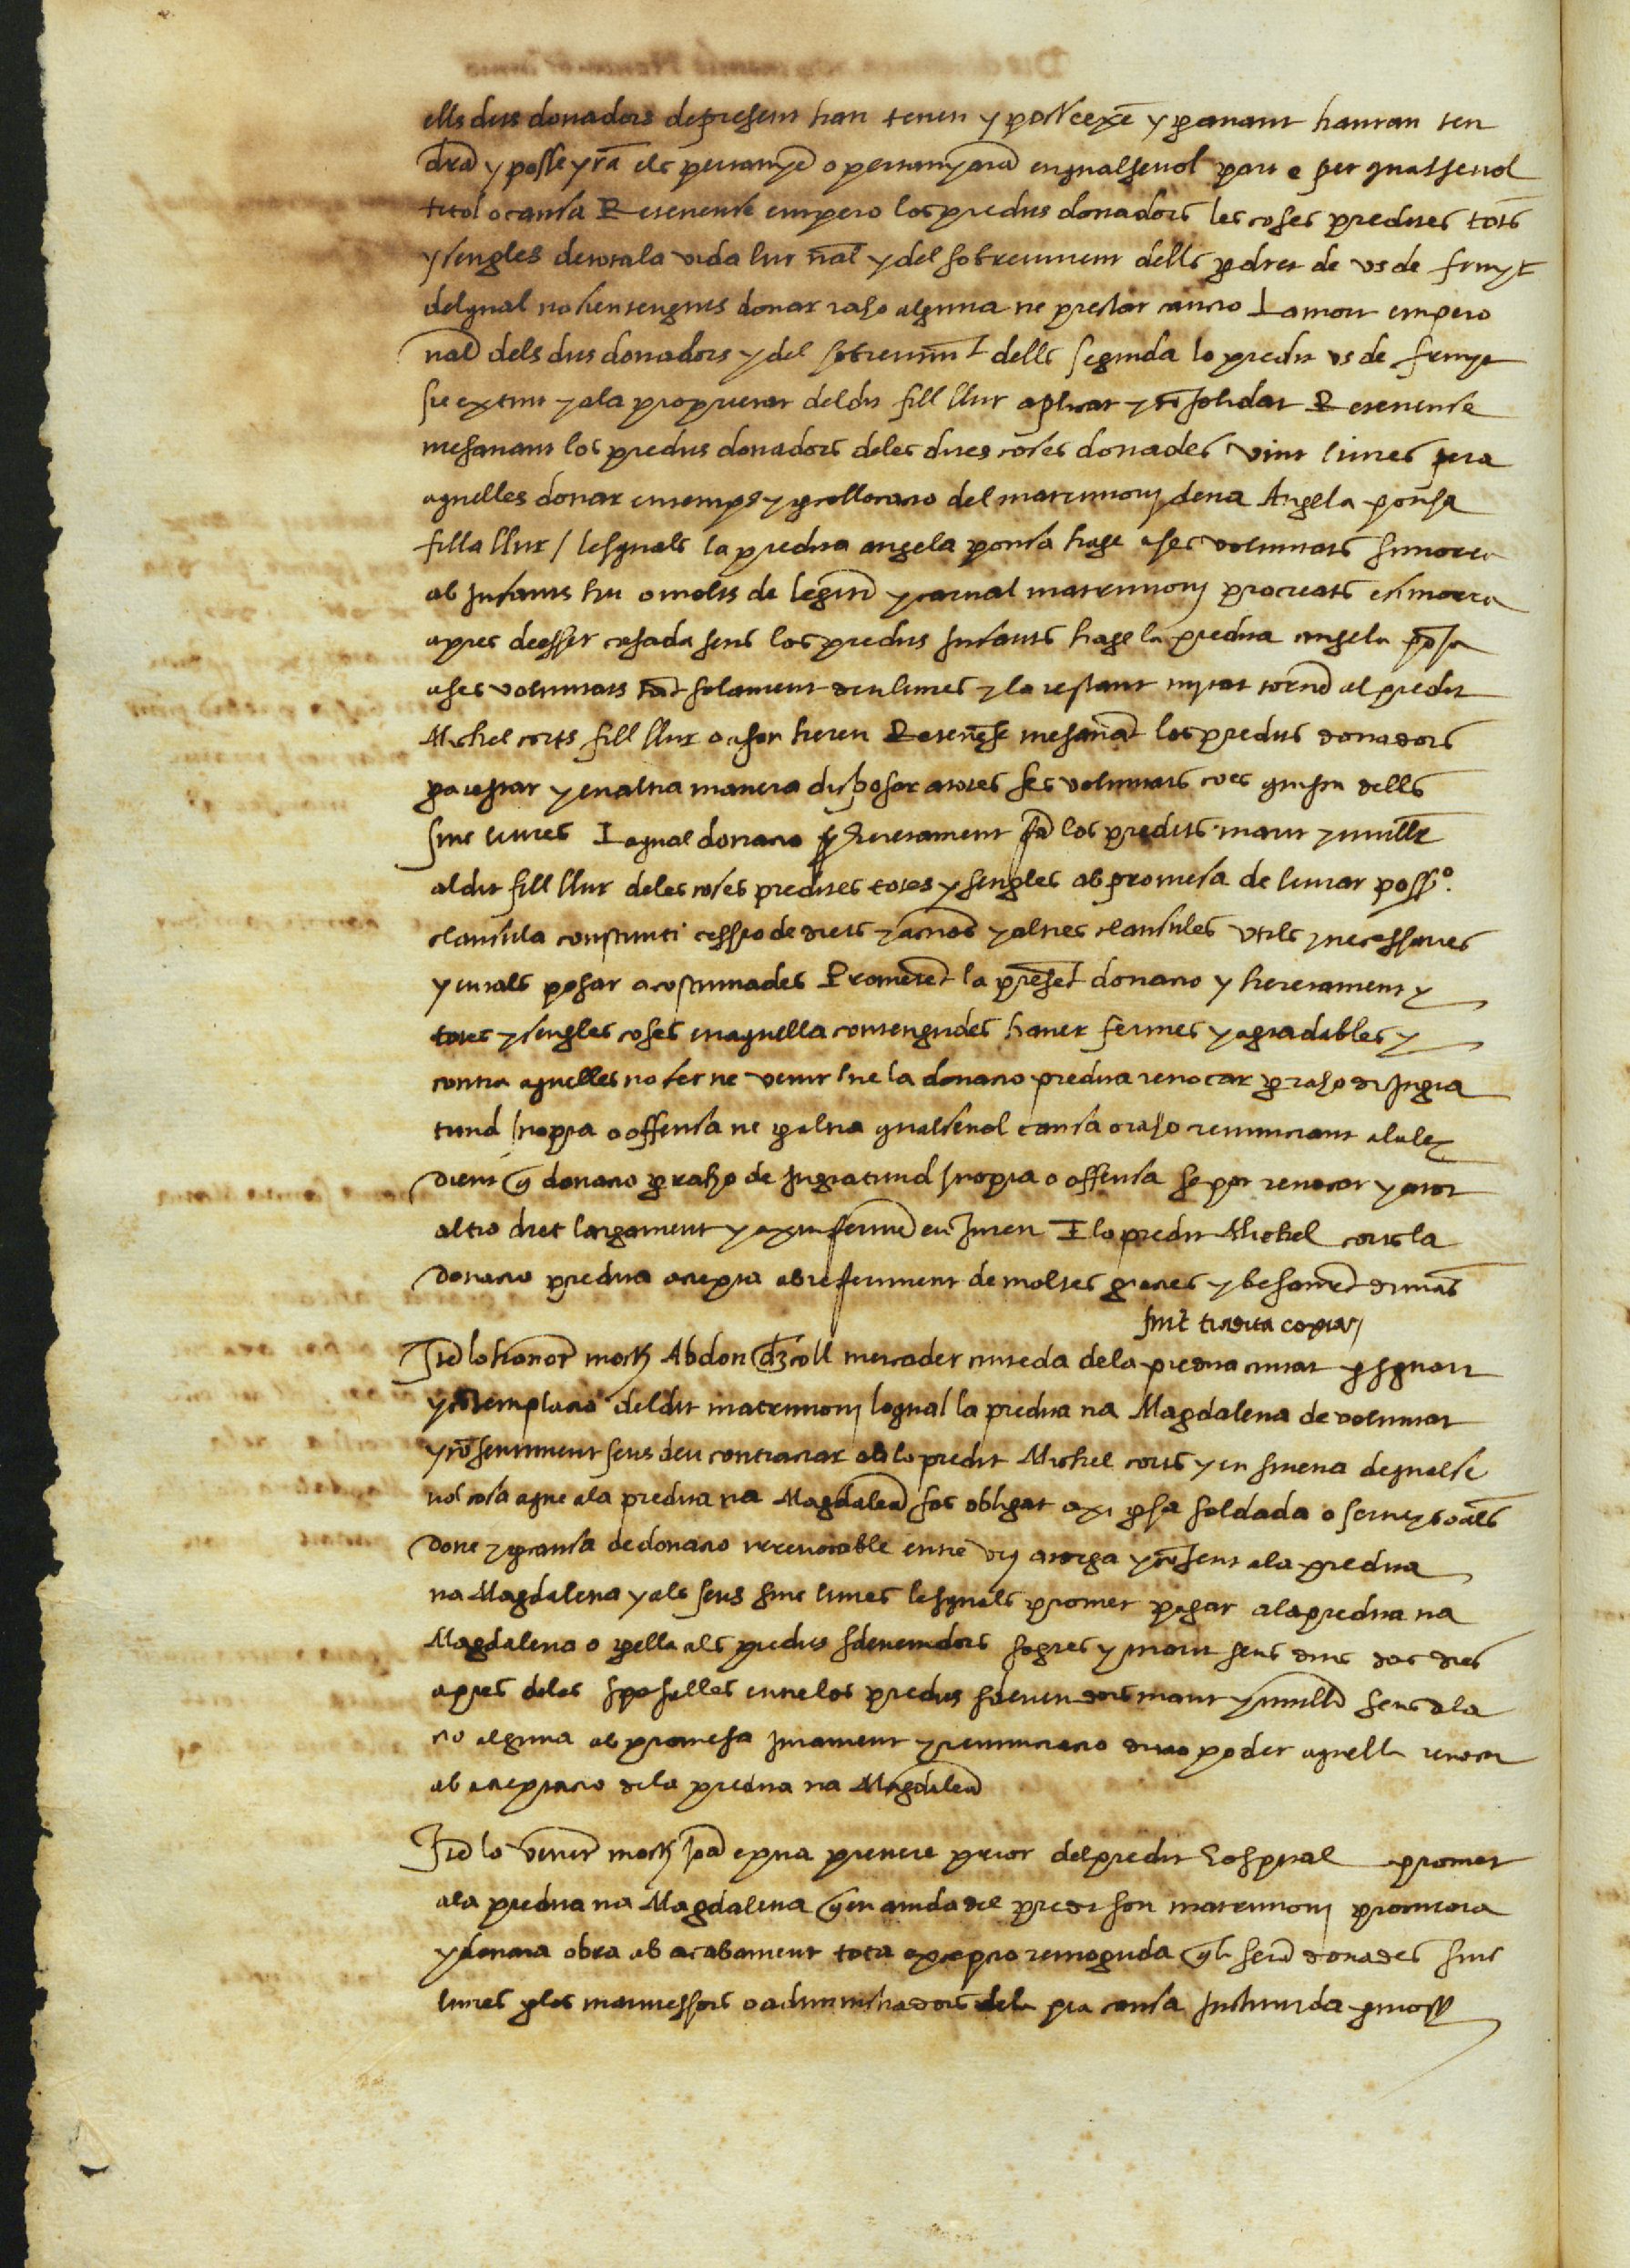 ells dits donadors depresent han tenen y posseexē y p̱ auant hauran ten
drā y posseyrā els pertanyē o pertanyarā enqualseuol part e per qualseuol
titol o causa Retenense empero los predits donadors les coses predites tots
y sengles detota la vida lur nāl y del sobreuiuent dells p̱ dret de vs de fruyt
delqual no sien tenguts donar raho alguna ne prestar caucio I a mort empero
nāl dels dits donadors y del sobreuiuēt dells seguida lo predit vs de fruyt
sie extint y ala proprietat deldit fill llur aplicat y cōsolidat Retenense
mesauant los predits donadors deles dites coses donades vint liures pera
aquelles donar entemps y p̱ collocacio del matrimonj dena Angela ponsa
filla llur / lesquals la predita angela ponsa hage a ses voluntats si morra
ab infants hu o molts de legitī y carnal matrimonj procreats e si morra
apres deesser casada sens los predits infants hage la predita angela pōsa
a ses voluntats tāt solament deu liures y la restant mytat tornē al predit
Michel corts fill llur o a son hereu Retenēse mesauāt los predits donadors
p̱ a testar y en altra manera disposar a totes ses voluntats coes quiscu dells
sinc liures I aqual donacio y heretament fā los predits marit y mullēr
aldit fill llur deles coses predites totes y sengles ab promesa de liurar possº.
clausula constituti cessio de drets y accions y altres clausules vtils y necessaries
y en tals posar acostumades Prometēt la presēt donacio y heretament y
totes y sengles coses en aquella contengudes hauer fermes y agradables y
contra aquelles no fer ne venir / ne la donacio predita reuocar p̱ raho de ingra
titud inopia o offensa ne p̱ altra qualseuol causa o raho renunciant ala ley
dient q̄ donacio p̱ raho de ingratitud inopia o offensa se pot reuocar y a tot
altro dret largament y axi u fermē eu juren I lo predit Michel corts la
donacio predita accepta ab referiment de moltes gracies y besamēt de mās
fuit tradita copia
Itē lo honorᵉ mossē Abdon coll mercader ciuteda dela predita ciutat p̱ sguart
y cōtemplacio deldit matrimonj loqual la predita na Magdalena de voluntat
y cōsentiment seus deu contractar ab lo predit Michel corts y en smena dequalse
uol cosa aque ala predita na Magdalenā fos obligat axi p̱ sa soldada o seruey o als
done y p̱ causa de donacio irreuocable entre vius atorga y cōsent ala predita
na Magdalena y als seus sinc liures lesquals promet pagar ala predita na
Magdalena o p̱ ella als predits sdeuenidors sogres y marit seus dins dos dies
apres deles sposalles entre los predits sdeuenidors marit y mullēr sens dila
cio alguna ab promesa jurament y renunciacio de no poder aquella reuocar
ab acceptacio dela predita na Magdalenā
Itē lo venerᵉ mossē prenere prior delpredit hospital promet
ala predita na Magdalena q̄ en aiuda del predit son matrimonj procurara
y donara obra ab acabament tota excepcio remoguda q̄ li serā donades sinc
liures p̱ los marmessors o administradors dela pia causa instituida p̱ mossē